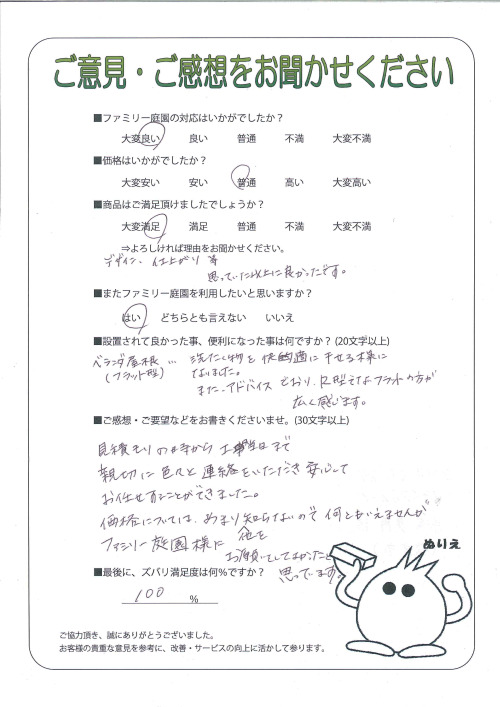 ご意見・ご感想をお聞かせください
■ファミリー庭園の対応はいかがでしたか？
大変良い 良い 普通 不満 大変不満
■価格はいかがでしたか？
大変安い 安い 普通 高い 大変高い
■商品はご満足頂けましたでしょうか？
大変満足 満足 普通 不満 大変不満
⇒よろしければ理由をお聞かせください。
デザイン、仕上がり等
思っていた以上に良かったです。
■またファミリー庭園を利用したいと思いますか？
はい どちらとも言えない いいえ
■設置されて良かった事、便利になった事は何ですか？(20文字以上)
ベランダ屋根 … 洗たく物を快的適に干せる様に
(フラット型) なりました。
また、アドバイスどおり、R型よりフラットの方が
広く感じます。
■ご感想・ご要望などをお書きくださいませ。(30文字以上)
見積もりの時から工事当日まで
親切に色々と連絡をいただき安心して
お任せすることができました。
価格については、あまり知らないので何ともいえませんが
ファミリー庭園様に を
お願いしてよかったと
思っています。
■最後に、ズバリ満足度は何％ですか？
100 %
ぬりえ
ご協力頂き、誠にありがとうございました。
お客様の貴重な意見を参考に、改善・サービスの向上に活かして参ります。